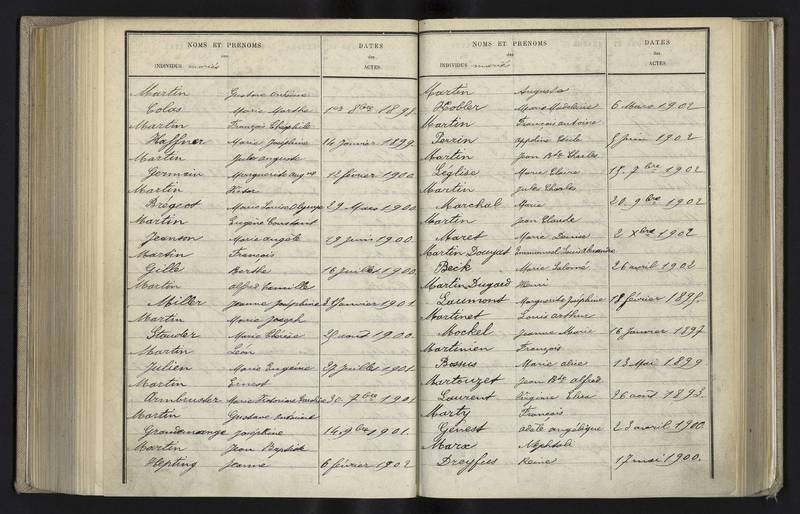 NOMS ET PRÉNOMS
des
INDIVIDUS mariés
DATES
des
ACTES
Martin Gustave Antoine
Colas Marie Marthe 1er 8bre 1891
Martin François Théophile
Haffner Marie Joséphine 14 Janvier 1899
Martin Jules auguste
Germain Marguerite 12 février 1900
Martin Victor
Brégeot Marie Louise 29 Mars 1900
Martin Eugène Constant
Jeanson Marie angèle 29 Juin 1900
Martin François
Gille Berthe 16 Juillet 1900
Martin alfred Camille
Miller Jeanne Joséphine 3 Janvier 1901
Martin Marie Joseph
Stauder Marie Thérèse août 1900
Martin Léon
Julien Marie Eugénie 27 Juillet 1901
Martin Ernest
Armbruster Marie Victorine 30 7bre 1901
Martin Gustave antoine
Grandemange Joséphine 14 9bre 1901
Martin Jean Baptiste
Hepting Jeanne 6 février 1902
NOMS ET PRÉNOMS
des
INDIVIDUS mariés
DATES
des
ACTES
Martin Auguste
Hobler Marie Madeleine 6 Mars 1902
Martin François antoine
Perrin Cécile 5 Juin 1902
Martin Jean Bte Charles
Léglise Marie Claire 15 7bre 1902
Martin Jules Charles
Marchal Marie 20 9bre 1902
Martin Jean Claude
Maret Marie Louise 2 Xbre 1902
Martin Douyat Emmanuel Louis Alexandre
Beck Marie Salomé 26 avril 1902
Martin Dugard Henri
Laumont Marguerite Joséphine 18 février 1895
Martinet Louis arthur
Mockel Jeanne Marie 16 Janvier 1897
Martinien François
Bassus Marie alice 13 Mai 1899
Martouzet Jean Bte alfred
Laurent Virginie Elisa 26 août 1893
Marty François
Genest adèle angélique 23 avril 1900
Marx Nephtali
Dreyfus Reine 17 mai 1900